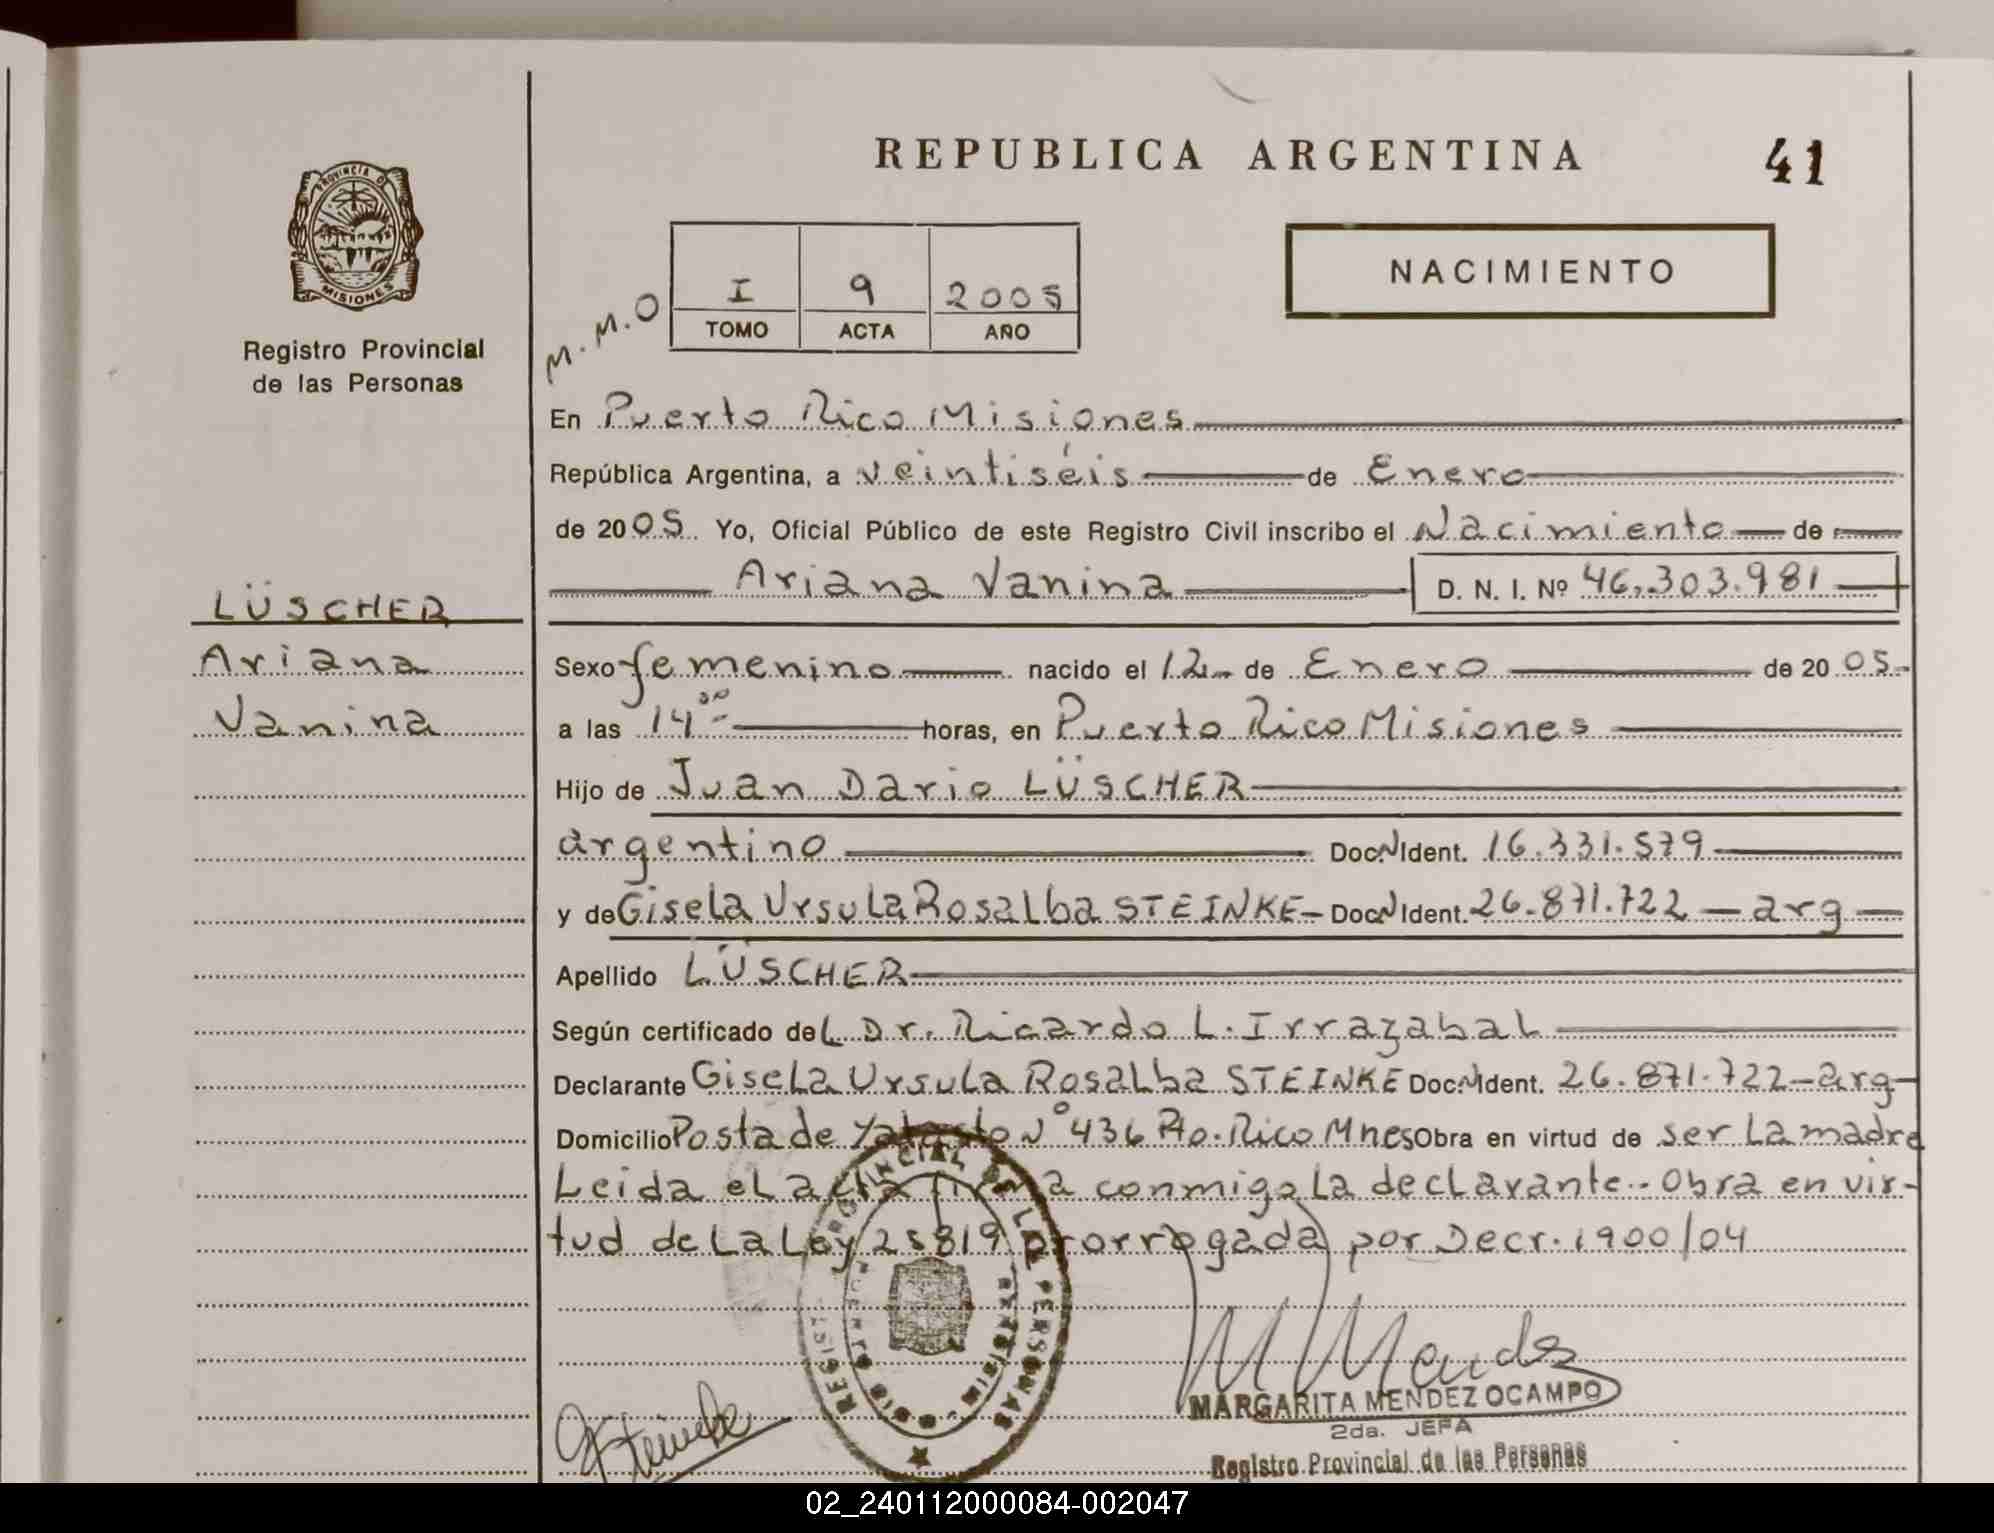 REPUBLICA ARGENTINA
41
PROVINCIA DE
MISIONES
Registro Provincial
de las Personas
NACIMIENTO
M.M.O
I 9 2005
TOMO ACTA AÑO
En Puerto Rico Misiones
República Argentina, a veintiséis de Enero
de 2005. Yo, Oficial Público de este Registro Civil inscribo el Nacimiento de
Ariana Vanina D. N. I. Nº 46.303.981
LÜSCHER
Ariana
Vanina
Sexo femenino nacido el 12 de Enero de 2005
a las 14 horas, en Puerto Rico Misiones
Hijo de Juan Dario LÜSCHER
argentino Doc.NIdent. 16.331.579
y de Gisela Ursula Rosalba STEINKE- Doc.NIdent. 26.871.722 - arg
Apellido LÜSCHER
Según certificado del Dr. Ricardo L. Irrazabal
Declarante Gisela Ursula Rosalba STEINKE Doc.NIdent. 26.871.722-arg
Domicilio Posta de Yatasto Nº 436 Pto. Rico Mnes Obra en virtud de ser la madre
Leida el acta firma conmigo la declarante.- Obra en vir-
tud de la Ley 25819 prorrogada por Decr. 1900/04
REGISTRO PROVINCIAL DE LAS PERSONAS
MISIONES
M Mendez
MARGARITA MENDEZ OCAMPO
2da. JEFA
Registro Provincial de las Personas
GSteinke
02_240112000084-002047